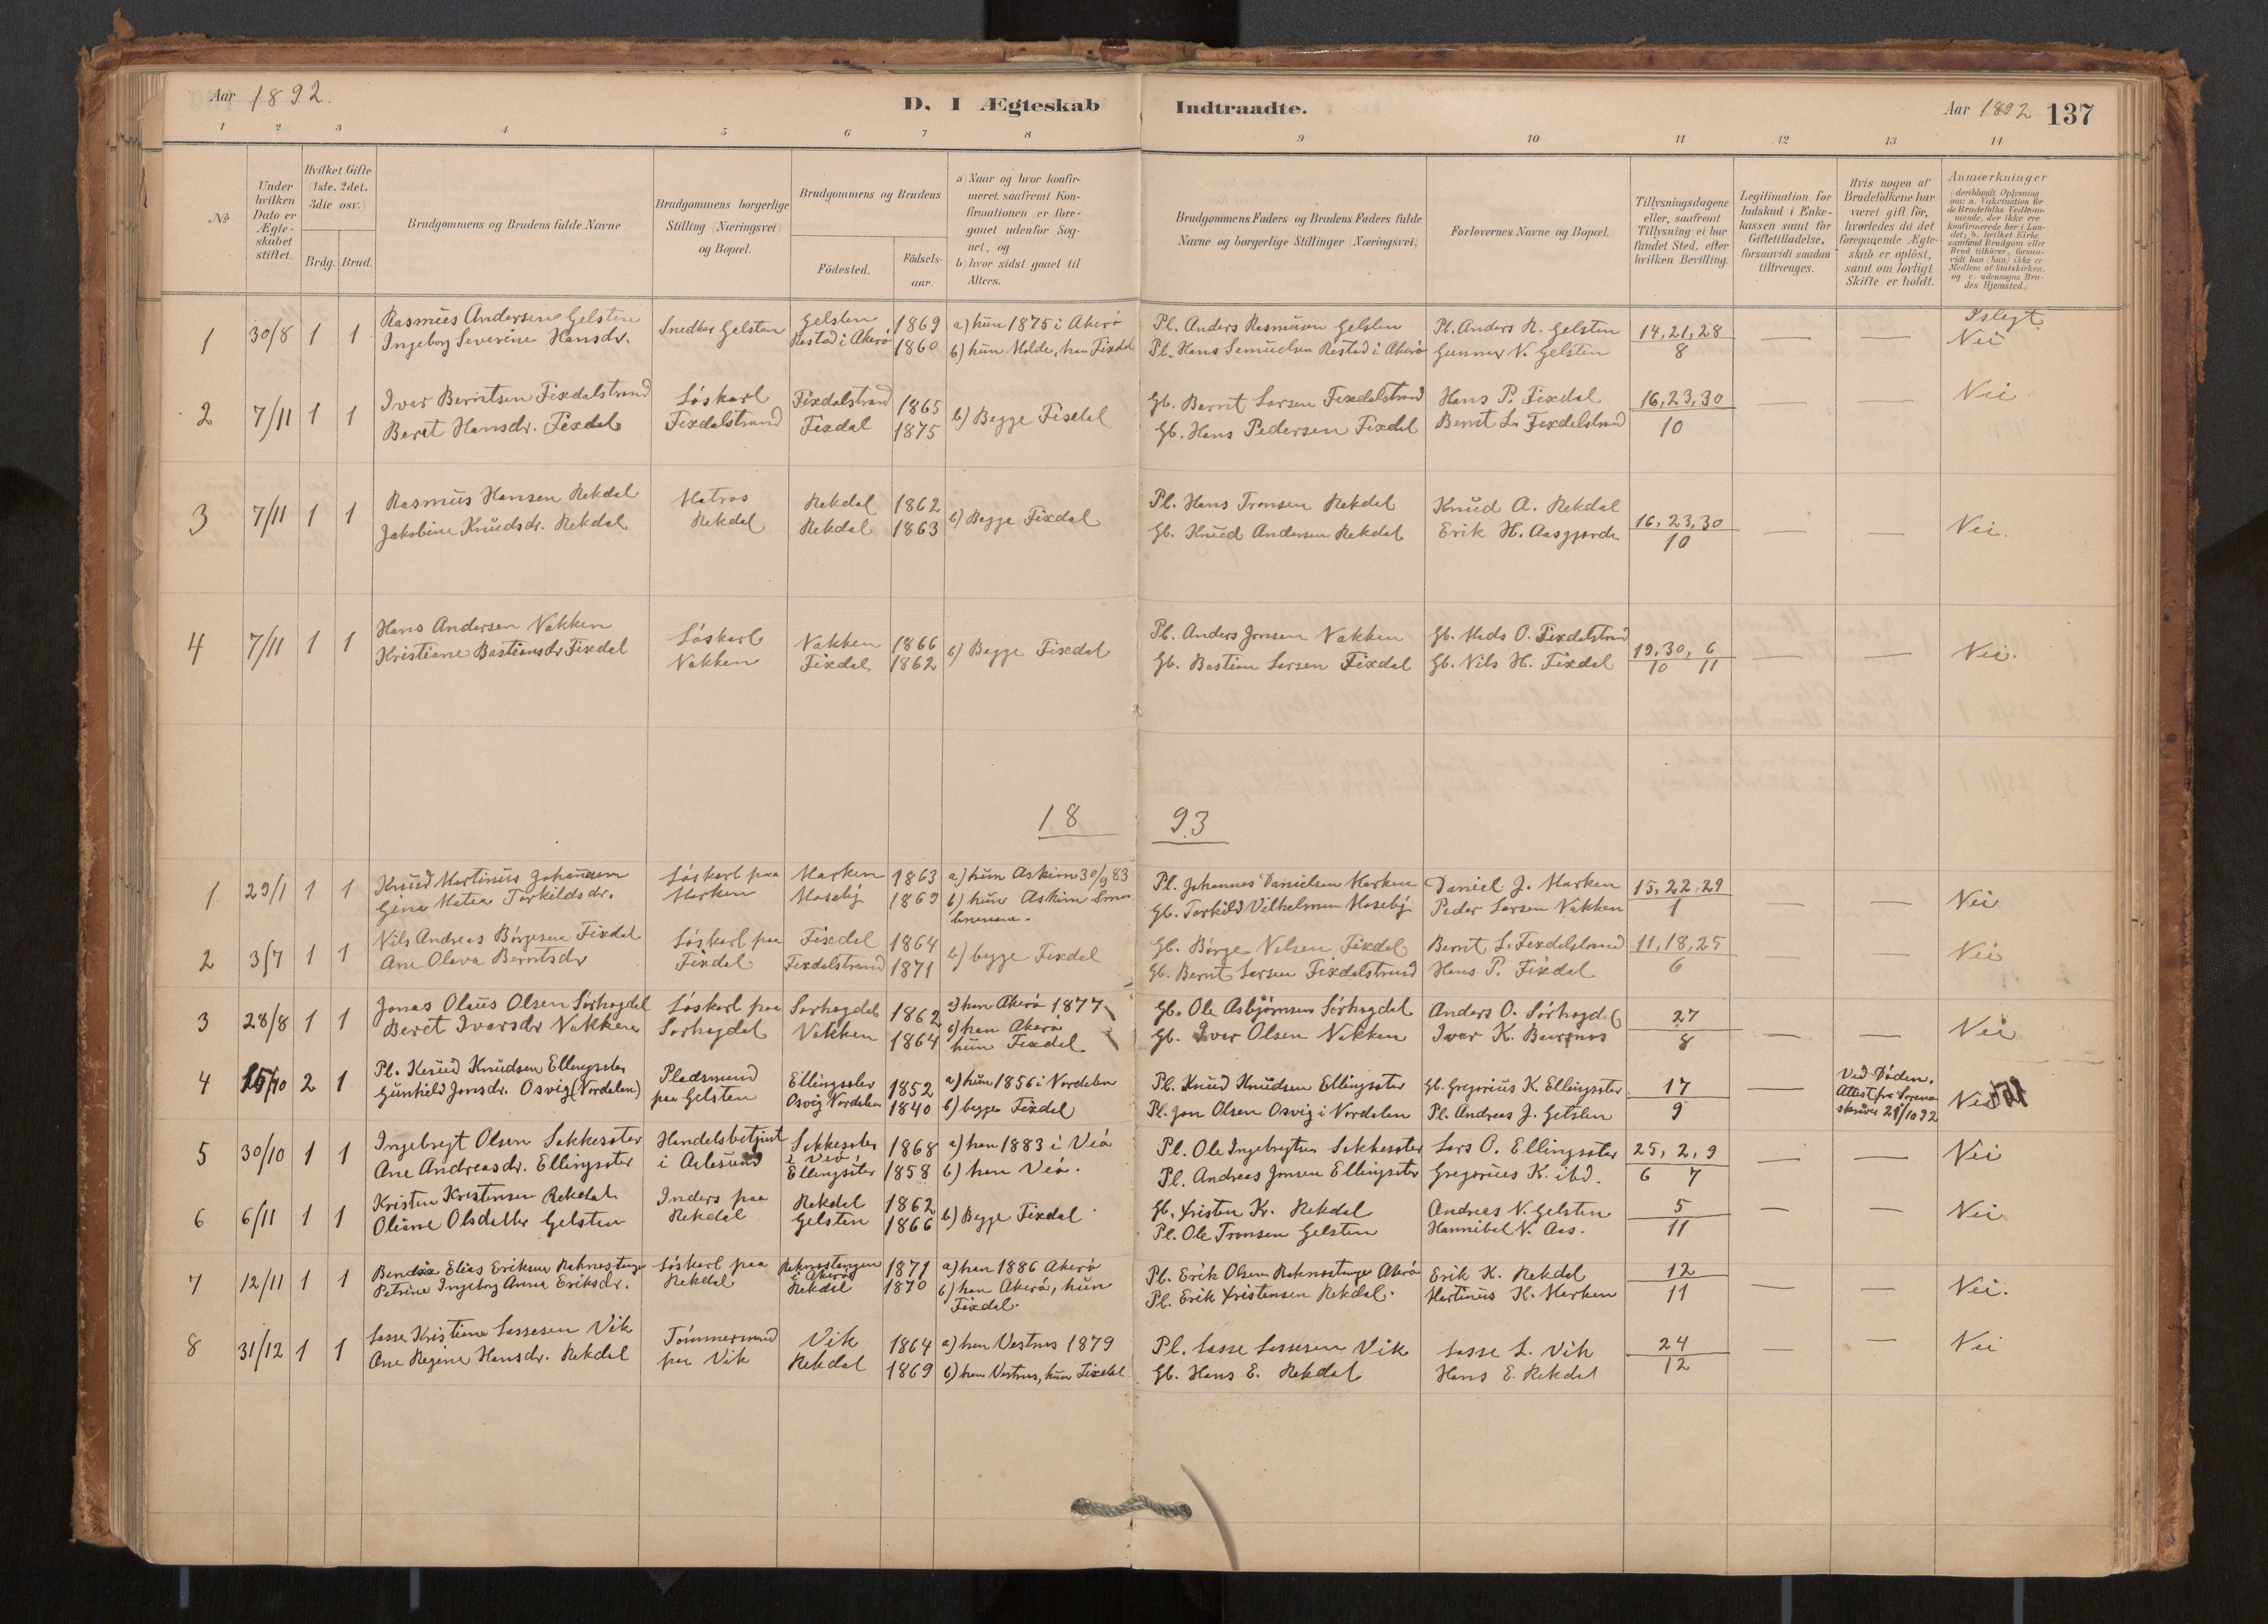 Aar 1892.
D. I Ægteskab Indtraadte.
Aar 1892 137
1 2 3 4 5 6 7 8 9 10 11 12 13 14
No
Under hvilken Dato er Ægteskabet stiftet.
Hvilket Gifte (1ste, 2det, 3die osv.)
Brdg. Brud.
Brudgommens og Brudens fulde Navne
Brudgommens borgerlige Stilling (Næringsvei) og Bopæl.
Brudgommens og Brudens
Födested. Födsels-aar.
a) Naar og hvor konfirmeret, saafremt Konfirmationen er foregaaet udenfor Sognet, og
b) hvor sidst gaaet til Alters.
Brudgommens Faders og Brudens Faders fulde Navne og borgerlige Stillinger (Næringsvei)
Forlovernes Navne og Bopæl.
Tillysningsdagene eller, saafremt Tillysning ei har fundet Sted, efter hvilken Bevilling.
Legitimation for Indskud i Enkekassen samt for Giftetilladelse, forsaavidt saadan tiltrænges.
Hvis nogen af Brudefolkene har været gift för, hvorledes da det foregaaende Ægteskab er oplöst, samt om lovligt Skifte er holdt.
Anmærkninger
(deriblandt Oplysning om: a. Vakcination for de Brudefolks Vedkommende, der ikke ere konfirmerede her i Landet; b. hvilket Kirkesamfund Brudgom eller Brud tilhörer, forsaavidt han (hun) ikke er Medlem af Statskirken, og c. udensogns Brudes Hjemsted.)
1 30/8 1 1 Rasmus Andersen Gelsten Snedker Gelsten Gelsten 1869 a) hun 1875 i Akerö Pl. Anders Rasmusen Gelsten Pl. Anders R. Gelsten 14, 21, 28 — — Islegt.
Ingeborg Severine Hansdr. Restad i Akerö 1860 b) hun Molde, han Fixdal Pl. Hans Samuelsen Restad i Akerö Gunnar N. Gelsten 8 Nei
2 7/11 1 1 Ivar Berntsen Fixdalstrand Löskarl Fixdalstrand 1865 b) Begge Fixdal Gb. Bernt Larsen Fixdalstrand Hans P. Fixdal 16, 23, 30 — — Nei
Beret Hansdr. Fixdal Fixdalstrand Fixdal 1875 Gb. Hans Pedersen Fixdal Bernt L. Fixdalstrand 10
3 7/11 1 1 Rasmus Hansen Rekdal Matros Rekdal 1862 b) Begge Fixdal Pl. Hans Tronsen Rekdal Knud A. Rekdal 16, 23, 30 — — Nei.
Jakobine Knudsdr. Rekdal Rekdal Rekdal 1863 Gb. Knud Andersen Rekdal Erik H. Aasgjærde 10
4 7/11 1 1 Hans Andersen Nakken Löskarl Nakken 1866 b) Begge Fixdal Pl. Anders Jonsen Nakken Gb. Mads O. Fixdalstrand 19, 30, 6 — — Nei.
Kristiane Bastiansdr. Fixdal Nakken Fixdal 1862 Gb. Bastian Larsen Fixdal Gb. Nils H. Fixdal 10 11
18 93
1 29/1 1 1 Knud Martinus Johannsen Löskarl paa Marken 1863 a) hun Askim 30/9 83 Pl. Johannes Danielsen Marken Daniel J. Marken 15, 22, 29 — — Nei
Gina Matea Torkildsdr. Marken Moseby 1869 b) hun Askim Gb. Torkild Vilhelmsen Moseby Peder Larsen Nakken 1
2 3/7 1 1 Nils Andreas Börgesen Fixdal Löskarl paa Fixdal 1864 b) begge Fixdal Gb. Börge Nilsen Fixdal Bernt L. Fixdalstrand 11, 18, 25 — — Nei
Ane Olava Berntsdr Fixdal Fixdalstrand 1871 Gb. Bernt Larsen Fixdalstrand Hans P. Fixdal 6
3 28/8 1 1 Jonas Olaus Olsen Sörhogdal Löskarl paa Sörhogdal 1862 a) han Akerö 1877 Gb. Ole Asbjörnsen Sörhogdal Anders O. Sörhogdal 27 — — Nei
Beret Ivarsdr Nakken Sorhogdal Nakken 1864 b) han Akerö hun Fixdal Gb. Ivar Olsen Nakken Ivar K. 8
4 15/10 2 1 Pl. Knud Knudsen Ellingsæter Pladsmand Ellingsæter 1852 a) hun 1856 i Nordalen Pl. Knud Knudsen Ellingsæter Gb. Gregorius K. Ellingsæter 17 — Ved Döden. Nei
Gunhild Jonsdr. Osvig (Nordalen) paa Gelsten Osvig Nordalen 1840 b) begge Fixdal Pl. Jon Olsen Osvig i Nordalen Pl. Andreas J. Gelsten 9 Attest fra Sorenskriver 21/10 92
5 30/10 1 1 Ingebregt Olsen Sekkesæter Handelsbetjent Sekkesæter i Veö 1868 a) han 1883 i Veö Pl. Ole Ingebregtsen Sekkesæter Lars O. Ellingsæter 25, 2, 9 — — Nei
Ane Andreasdr. Ellingsæter i Aalesund Ellingsæter 1858 b) han Veö. Pl. Andreas Jonsen Ellingsæter Gregorius K. ibd. 6 7
6 6/11 1 1 Kristen Kristensen Rekdal Inders paa Rekdal 1862 b) Begge Fixdal Gb. Kristen Kr. Rekdal Andreas N. Gelsten 5 — — Nei
Oliane Olsdatter Gelsten Rekdal Gelsten 1866 Pl. Ole Tronsen Gelsten Hannibal N. Aas. 11
7 12/11 1 1 Bendix Elias Eriksen Raknestangen Löskarl paa Raknestangen i Akerö 1871 a) han 1886 Akerö Pl. Erik Olsen Raknestangen Akerö Erik K. Rekdal 12 — — Nei.
Petrine Ingeborg Anna Eriksdr. Rekdal Rekdal 1870 b) han Akerö, hun Fixdal. Pl. Erik Kristensen Rekdal. Martinus K. Marken 11
8 31/12 1 1 Lasse Kristian Lassesen Vik Tömmermand Vik 1864 a) han Vestnes 1879 Pl. Lasse Lassesen Vik Lasse L. Vik 24 — — Nei
Ane Regine Hansdr. Rekdal paa Vik Rekdal 1869 b) han Vestnes, hun Fixdal Gb. Hans E. Rekdal Hans E. Rekdal 12